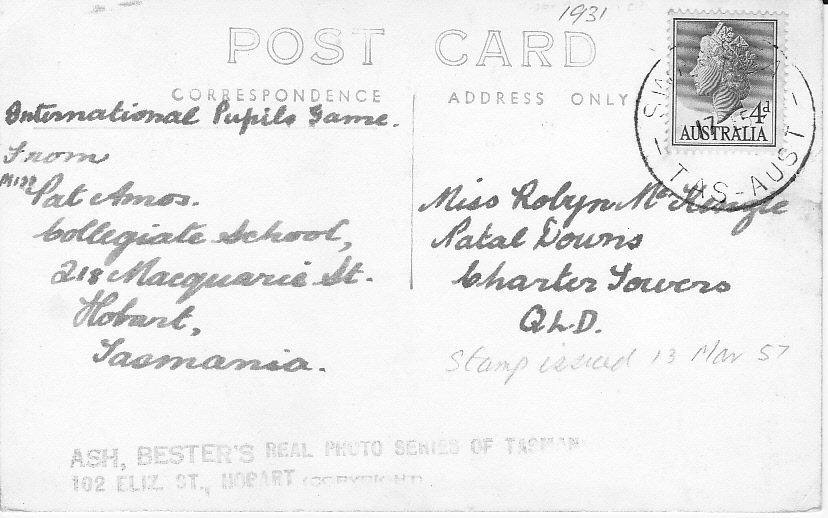 1931
POST CARD
CORRESPONDENCE
ADDRESS ONLY
International Pupils Game.
From
Miss Pat Amos.
Collegiate School,
218 Macquarie St.
Hobart,
Tasmania.
4d
AUSTRALIA
17
TAS-AUST
Miss Robyn
Natal Downs
Charter Towers
QLD.
Stamp issued 13 Mar 57
ASH, BESTER'S REAL PHOTO SERIES OF TASMAN
102 ELIZ. ST., HOBART (COPYRIGHT)